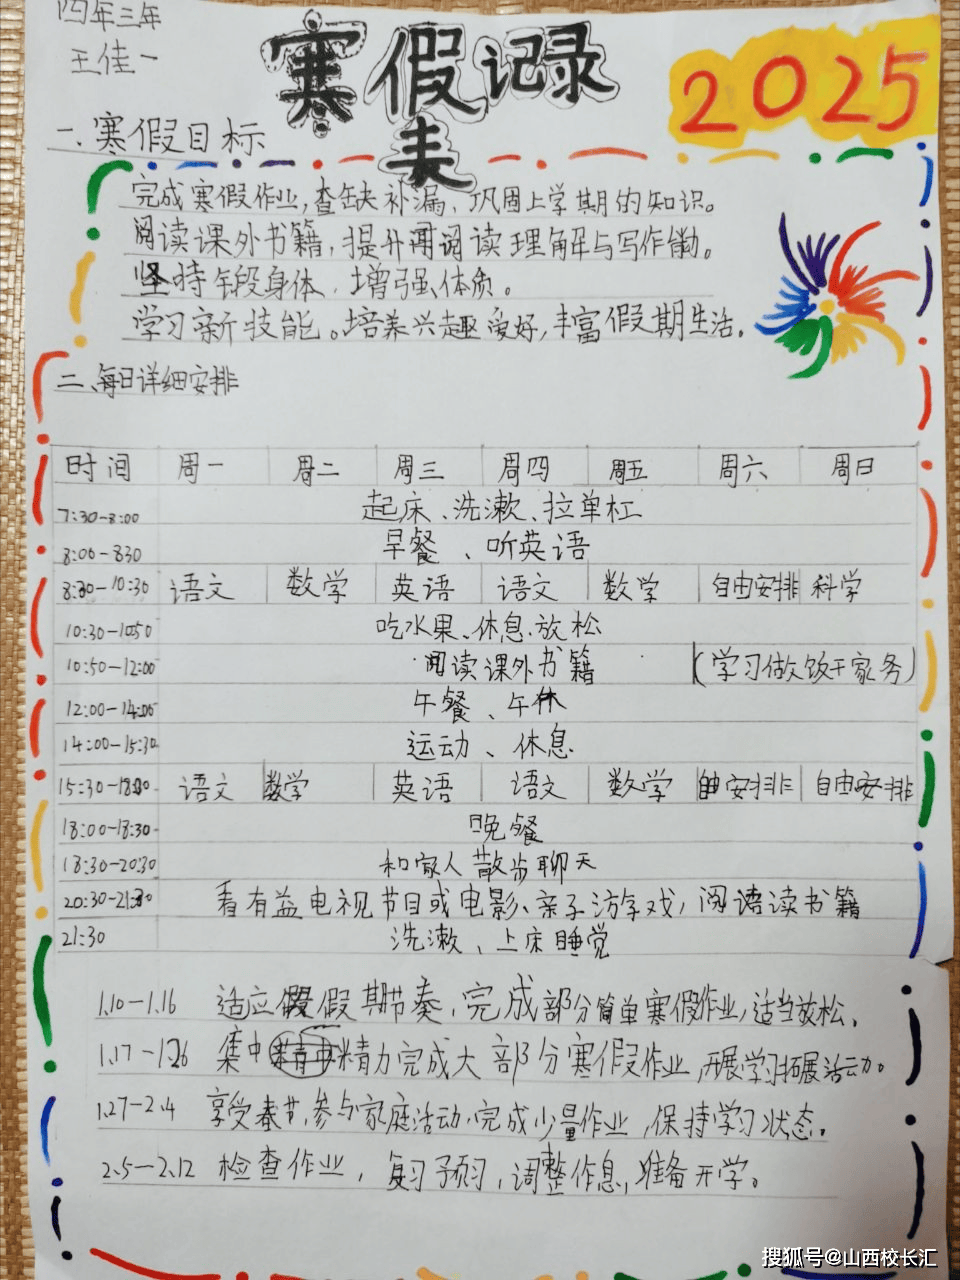 四年三年
王佳一
寒假记录
表
2025
一、寒假目标
完成寒假作业,查缺补漏、巩固上学期的知识。
阅读课外书籍,提升阅读理解与写作能力。
坚持锻段身体,增强体质。
学习新技能。培养兴趣爱好,丰富假期生活。
二、每日详细安排
时间 周一 周二 周三 周四 周五 周六 周日
7:30-8:00 起床、洗漱、拉单杠
8:00-830 早餐、听英语
8:30-10:30 语文 数学 英语 语文 数学 自由安排 科学
10:30-10:50 吃水果、休息、放松
10:50-12:00 阅读课外书籍 (学习做饭干家务)
12:00-14:00 午餐、午休
14:00-15:30 运动、休息
15:30-18:00 语文 数学 英语 语文 数学 自由安排 自由安排
18:00-18:30 晚餐
18:30-20:30 和家人散步聊天
20:30-21:30 看有益电视节目或电影、亲子游戏,阅读书籍
21:30 洗漱、上床睡觉
1.10-1.16 适应假期节奏,完成部分简单寒假作业,适当放松,
1.17-1.26 集中精力完成大部分寒假作业,开展学习拓展活动。
1.27-2.4 享受春节,参与家庭活动,完成少量作业,保持学习状态。
2.5-2.12 检查作业,复习预习,调整作息,准备开学。
搜狐号@山西校长汇